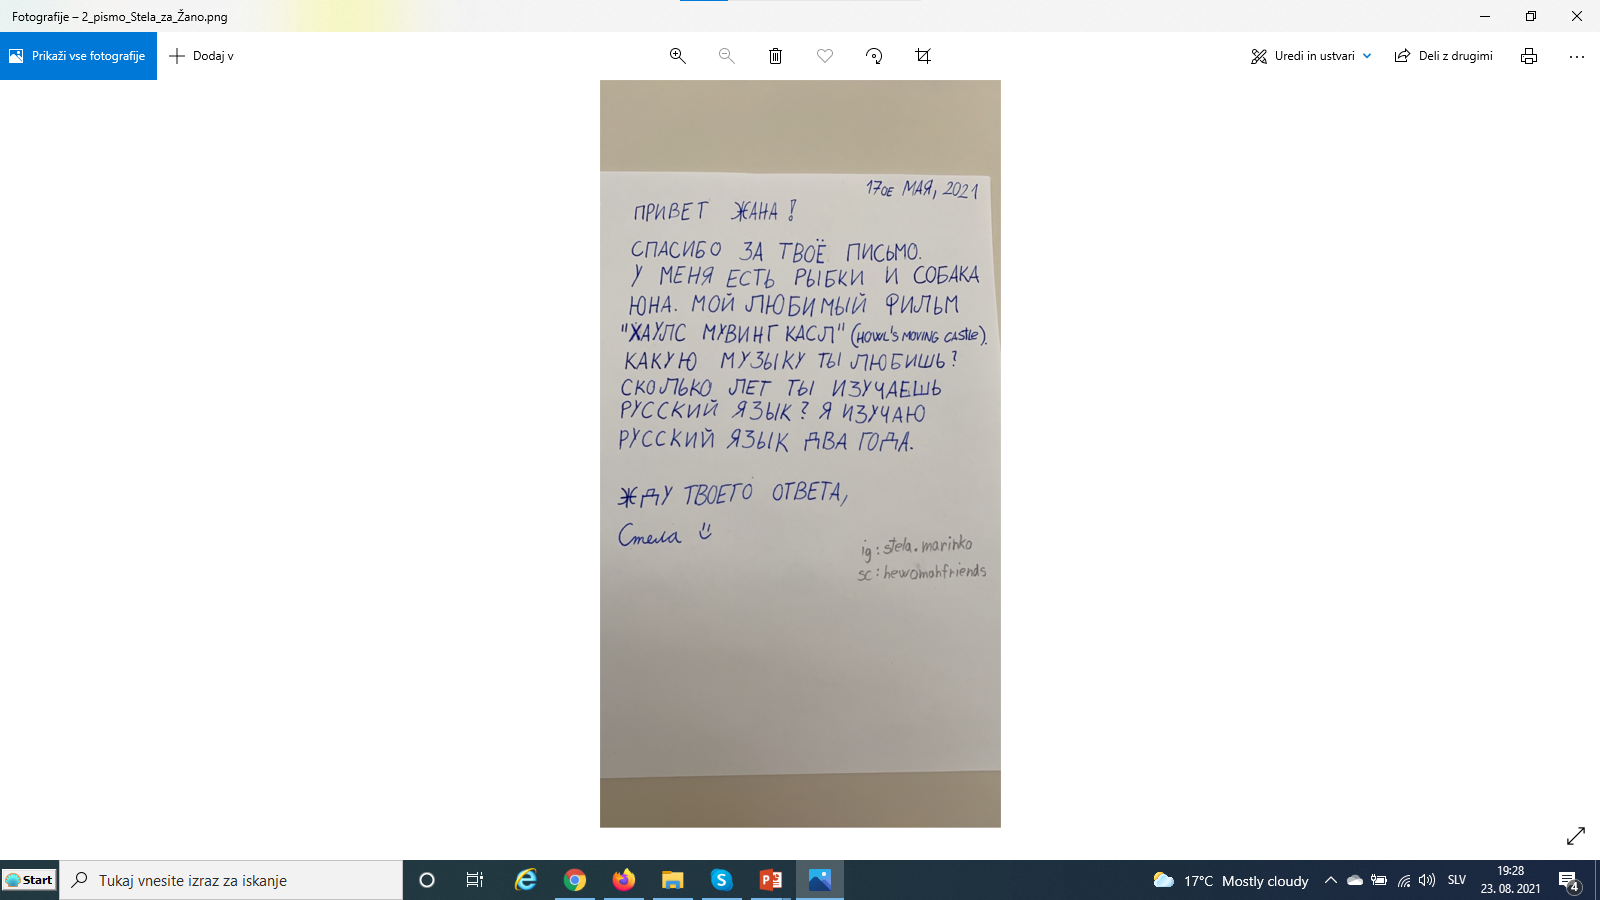 Fotografije – 2_pismo_Stela_za_Žano.png
Prikaži vse fotografije
Dodaj v
Uredi in ustvari
Deli z drugimi
17ОЕ МАЯ, 2021
ПРИВЕТ ЖАНА!
СПАСИБО ЗА ТВОЁ ПИСЬМО.
У МЕНЯ ЕСТЬ РЫБКИ И СОБАКА
ЮНА. МОЙ ЛЮБИМЫЙ ФИЛЬМ
"ХАУЛС МУВИНГ КАСЛ" (HOWL'S MOVING CASTLE).
КАКУЮ МУЗЫКУ ТЫ ЛЮБИШЬ?
СКОЛЬКО ЛЕТ ТЫ ИЗУЧАЕШЬ
РУССКИЙ ЯЗЫК? Я ИЗУЧАЮ
РУССКИЙ ЯЗЫК ДВА ГОДА.
ЖДУ ТВОЕГО ОТВЕТА,
Стела
ig: stela.marinko
sc: hewomahfriends
Start
Tukaj vnesite izraz za iskanje
17°C Mostly cloudy
SLV
19:28
23. 08. 2021
4